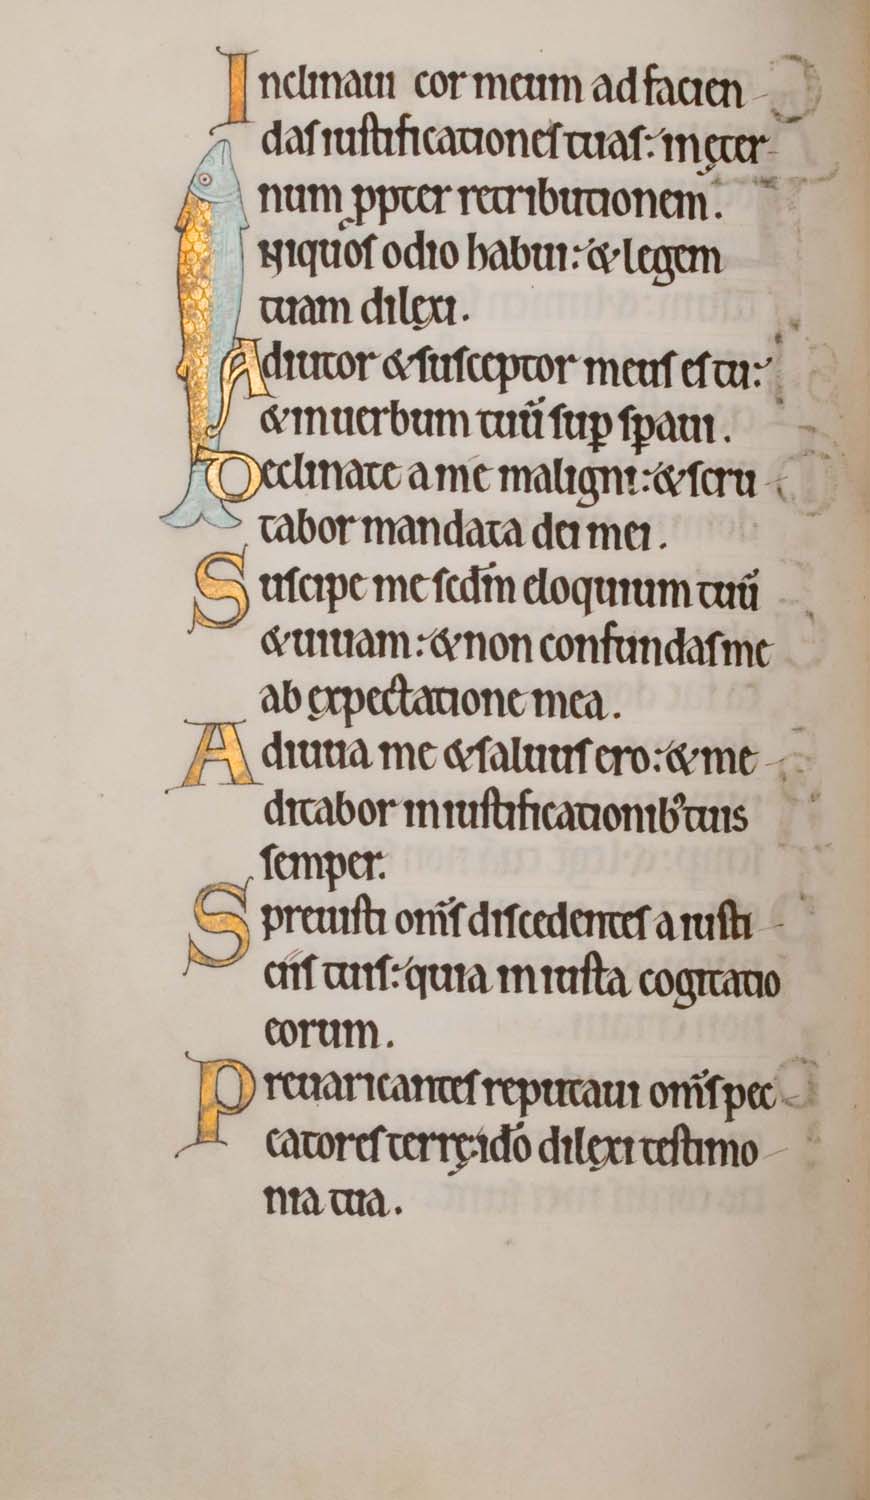 Inclinaui cor meum ad facien
daſ iuſtificationeſ tuaſ: in ęter
num ꝓpter retributionem.
Iniquoſ odio habui: & legem
tuam dilexi.
Adiutor & ſuſceptor meuſ eſ tu:
& in uerbum tuū ſuꝑ ſꝑaui.
Declinate a me maligni: & ſcru
tabor mandata dei mei.
Suſcipe me ſedm̄ eloquium tuū
& uiuam: & non confundaſ me
ab expectatione mea.
Adiuua me & ſaluuſ ero: & me
ditabor in iuſtificationib; tuis
ſemper.
Spreuiſti om̄ſ diſcedenteſ a iuſti
ciiſ tuiſ: quia iniuſta cogitatio
eorum.
Preuaricanteſ reputaui om̄ſ pec
catoreſ terrę: ido dilexi teſtimo
nia tua.